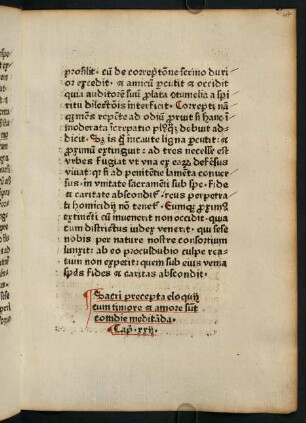 profilit. cū de correptōne sermo duri
or excedit. & amicū pcutit & occidit
quia auditorē suū plata cōtumelia a spi
ritu dilectōis interficit. Correpti nā
q; mēs repēte ad odiū prūit si hanc in
moderata īcrepatio plusq; debuit ad
dicit. Sz is q incaute ligna pcutit. &
proximū extinguit: ad tres necesse est
vrbes fugiat vt vna ex eaq defēsus
viuat. qr si ad penitētie lamēta conuer
sus. in vnitate sacramēti sub spe. fide
& caritate abscondit. reus perpetra
ti homicidij nō tenet. Eumq proximꝰ
extincti cū inuenerit non occidit. quia
cum districtus iudex venerit. qui sese
nobis per nature nostre consortium
iunxit: ab eo proculdubio culpe rea
tum non expetit: quem sub eius venia
spēs fides & caritas abscondit.
Sacri precepta eloquij
cum timore & amore sūt
cottidie meditāda.
Capm. xxij.